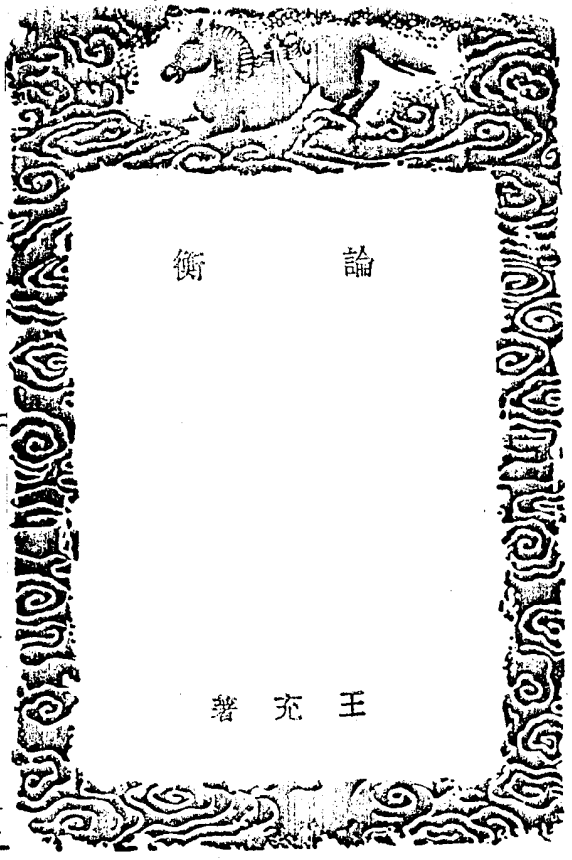 論衡
王充著